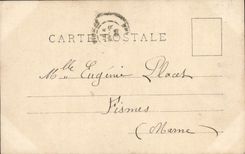 CARTE POSTALE
Mlle Eugénie Placet
Fismes
(Marne)